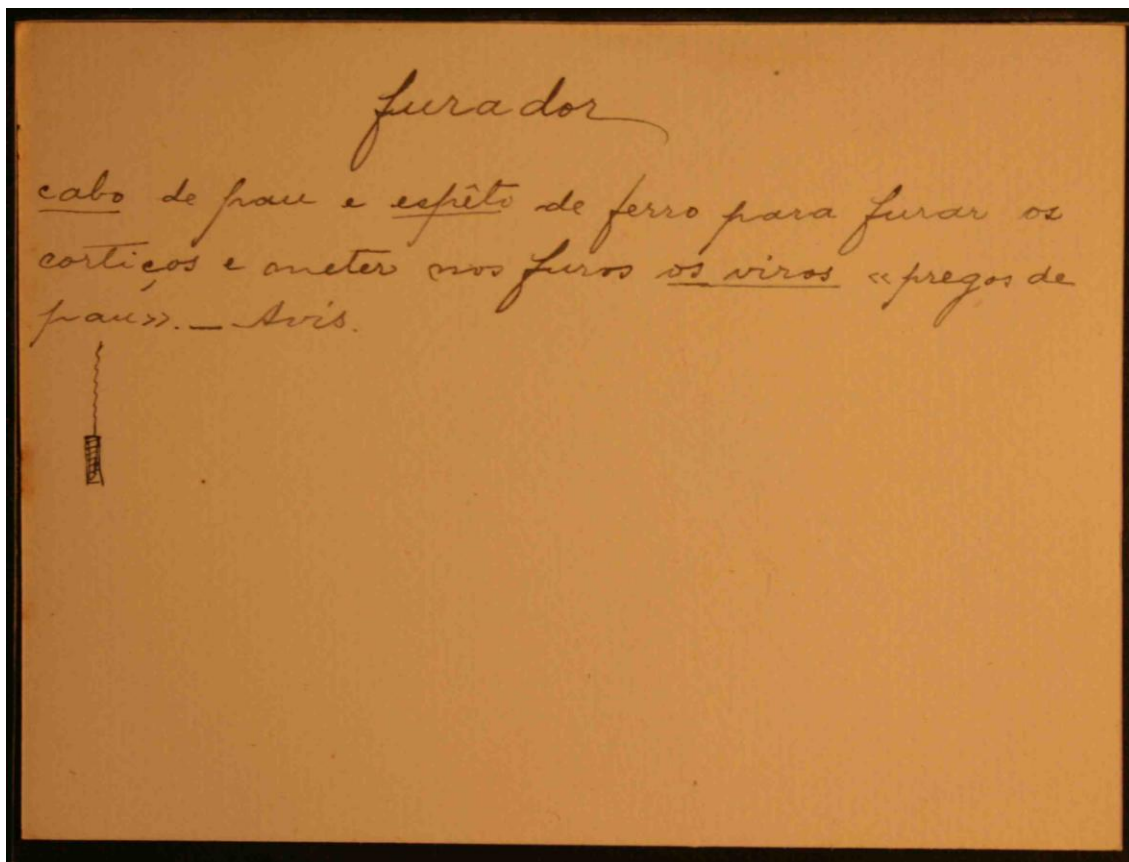 furador
cabo de pau e espêto de ferro para furar os
cortiços e meter nos furos os viros «pregos de
pau». — Avis.